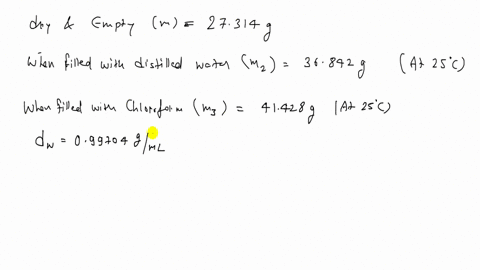 dry & Empty (m) = 27.314 g
When filled with distilled water (m2) = 36.842 g (At 25°C)
When filled with Chloroform (m3) = 41.428 g (At 25°C)
dw = 0.99704 g/mL